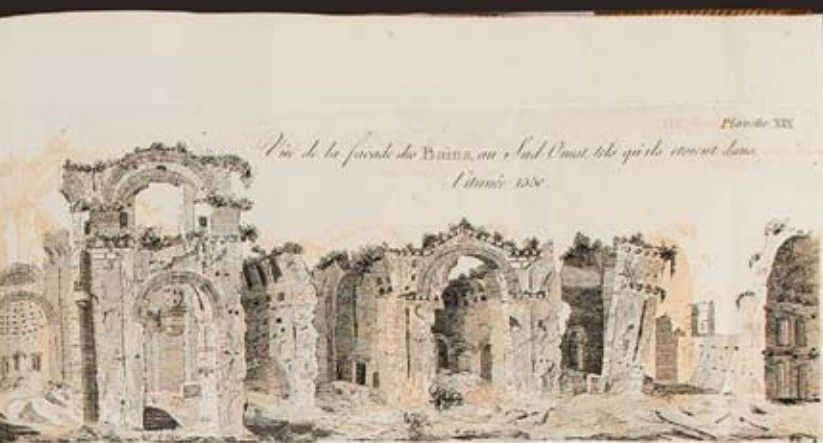 Planche XIX
Vue de la facade des Bains, au Sud Ouest, tels qu'ils étoient dans
l'année 1550.